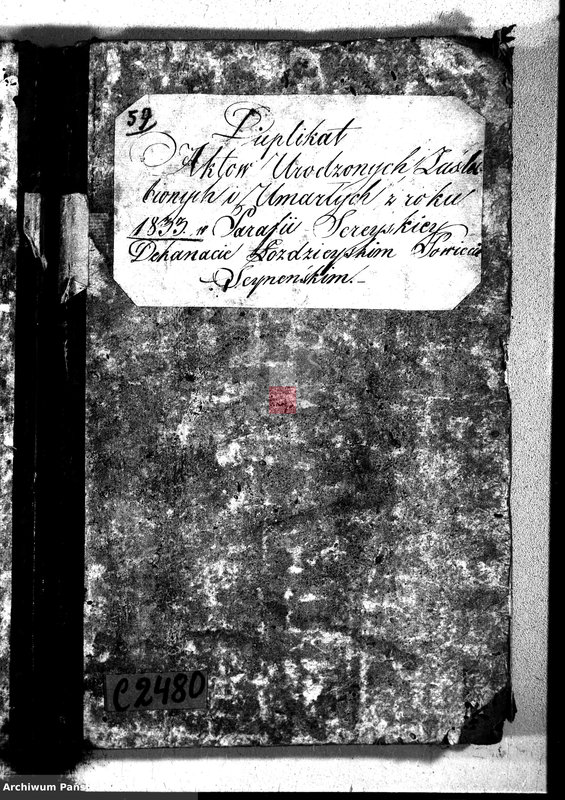 59
Duplikat
Aktow Urodzonych Zaślu-
bionych i Umarłych z roku
1833 w Parafii Sereyskiey
Dekanacie Łozdzieyskim Powiecie
Seynenskim.
C2480
Archiwum Pańs